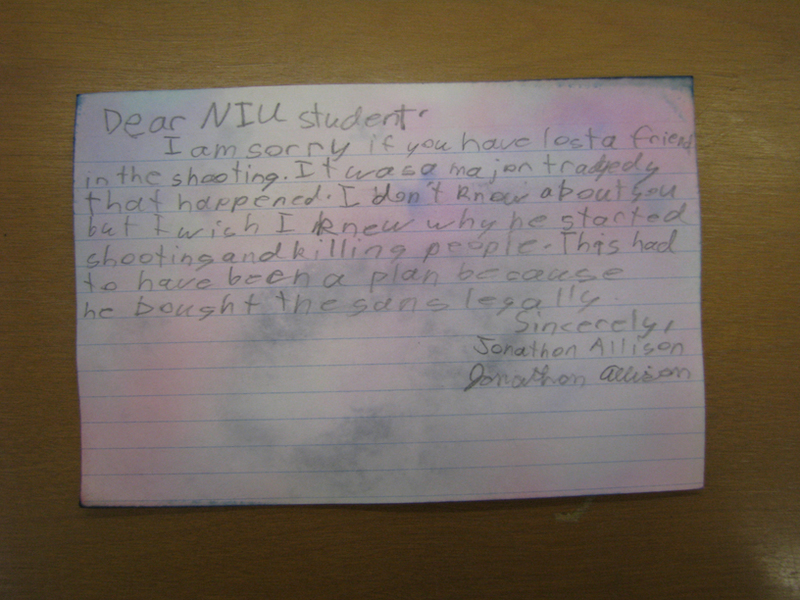 Dear NIU student.
I am sorry if you have lost a friend
in the shooting. It was a major tradgedy
that happened. I don't know about you
but I wish I knew why he started
shooting and killing people. This had
to have been a plan because
he bought the guns legally.
Sincerely,
Jonathon Allison
Jonathon Allison